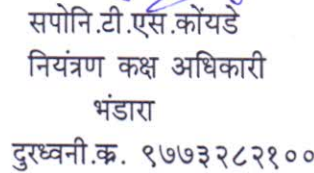 सपोनि.टी.एस.कोंयडे
नियंत्रण कक्ष अधिकारी
भंडारा
दुरध्वनी.क्र. ९७७३२८२१००